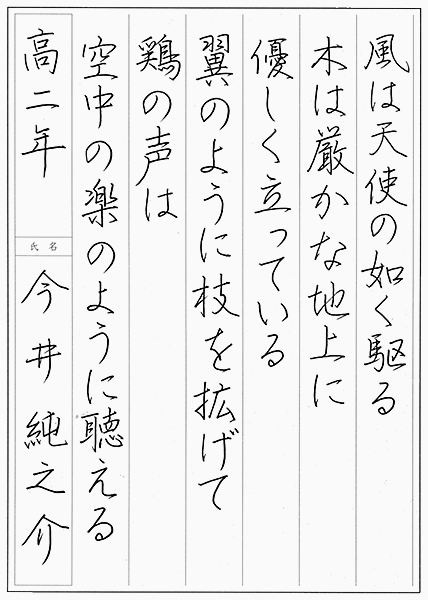 風は天使の如く駆る
木は厳かな地上に
優しく立っている
翼のように枝を拡げて
鶏の声は
空中の楽のように聴える
高二年
氏名
今井純之介